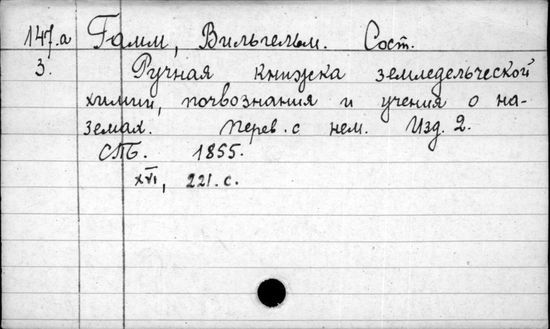 147.а Гамм, Вильгельм. Сост.
3. Ручная книжка земледельческой
химии, почвознания и учения о на-
земах. Перев. с нем. Изд. 2.
СПБ. 1855.
XVI, 221. с.